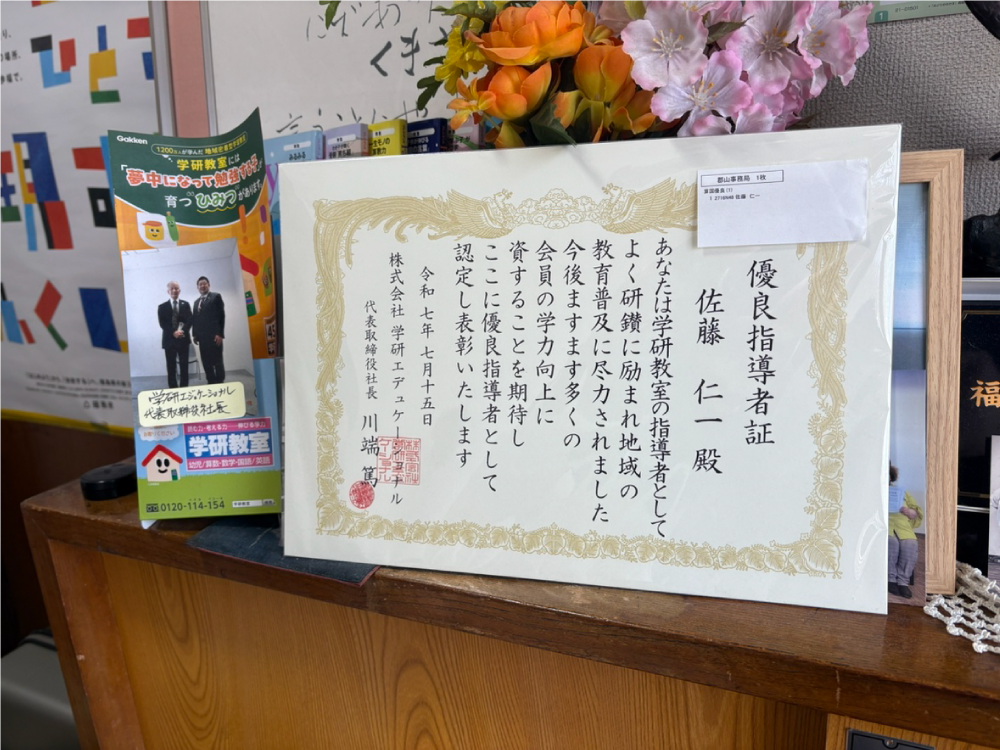 優良指導者証
佐藤 仁一 殿
あなたは学研教室の指導者として
よく研鑽に励まれ地域の
教育普及に尽力されました
今後ますます多くの
会員の学力向上に
資することを期待し
ここに優良指導者として
認定し表彰いたします
令和七年七月十五日
株式会社 学研エデュケーショナル
代表取締役社長 川端 篤
郡山事務局 1枚
佐藤 仁一
Gakken
学研教室には
「夢中になって勉強する子」
育つひみつがあります。
学研エデュケーショナル
代表取締役社長
学研教室
幼児/算数・数学・国語/英語
0120-114-154
くま
福